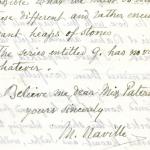 have different and rather
heaps of stones
the series entitled G. has no
whatever.
Believe me dear Miss Paters
yours sincerely
M. Naville